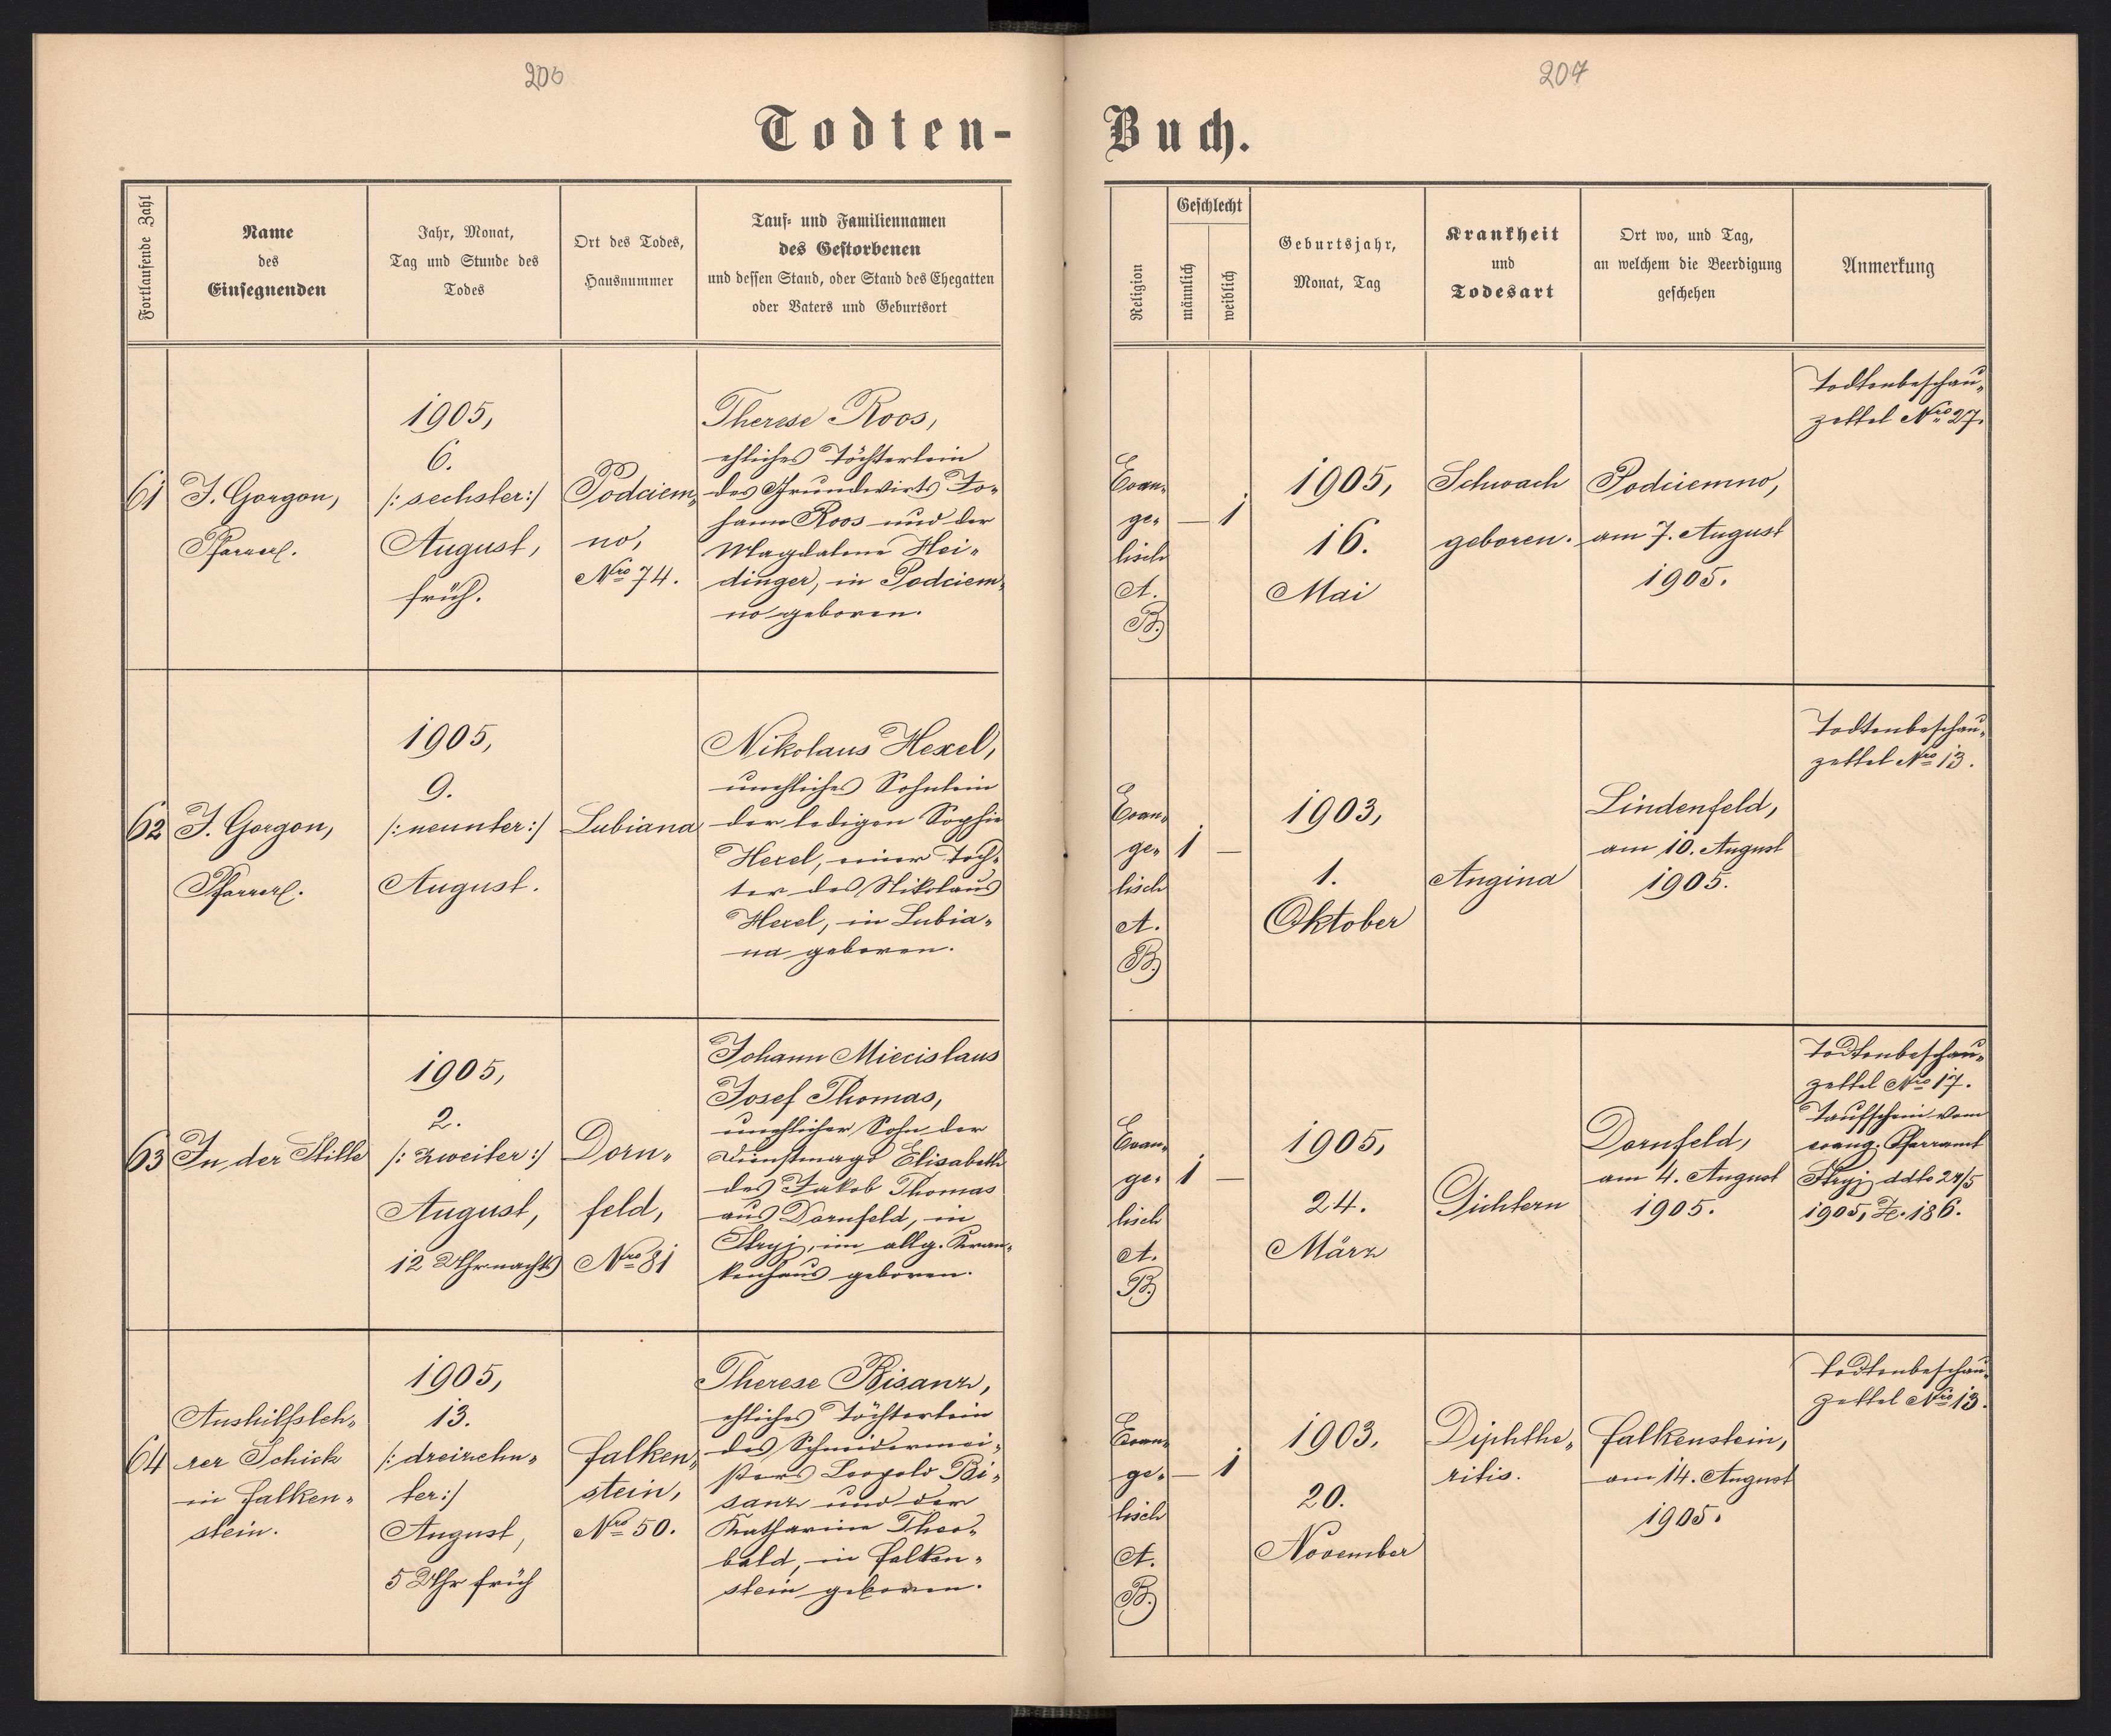 206
207
Todten-
Buch.
Fortlaufende Zahl
Name
des
Einsegnenden
Jahr, Monat,
Tag und Stunde des
Todes
Ort des Todes,
Hausnummer
Tauf- und Familiennamen
des Gestorbenen
und dessen Stand, oder Stand des Ehegatten
oder Vaters und Geburtsort
Religion
Geschlecht
männlich
weiblich
Geburtsjahr,
Monat, Tag
Krankheit
und
Todesart
Ort wo, und Tag,
an welchem die Beerdigung
geschehen
Anmerkung
61
J. Gorgon,
Pfarrer.
1905,
6.
/: sechster :/
August,
früh.
Podciem-
no,
Nro 74.
Therese Roos,
ehliches Töchterlein
des Grundwirts Jo-
hann Roos und der
Magdalene Hei-
dinger, in Podciem-
no geboren.
Evan-
ge-
lisch
A.
B.
—
1
1905,
16.
Mai
Schwach
geboren.
Podciemno,
am 7. August
1905.
Todtenbeschau-
zettel Nro 27.
62
J. Gorgon,
Pfarrer.
1905,
9.
/: neunter :/
August.
Lubiana
Nikolaus Hexel,
unehliches Sohnlein
der ledigen Sophie
Hexel, einer Toch-
ter des Nikolaus
Hexel, in Lubia-
na geboren.
Evan-
ge-
lisch
A.
B.
1
—
1903,
1.
Oktober
Angina
Lindenfeld,
am 10. August
1905.
Todtenbeschau-
zettel Nro 13.
63
In der Stille
1905,
2.
/: zweiter :/
August,
12 Uhr nachts
Dorn-
feld,
Nro 81
Johann Miecislaus
Josef Thomas,
unehlicher Sohn der
Dienstmagd Elisabeth
des Jakob Thomas
aus Dornfeld, in
Stryj, im allg. Kran-
kenhaus geboren.
Evan-
ge-
lisch
A.
B.
1
—
1905,
24.
März
Gichtern
Dornfeld,
am 4. August
1905.
Todtenbeschau-
zettel Nro 17.
Taufschein vom
evang. Pfarramt
Stryj ddto 24/5
1905, Z. 186.
64
Aushilfsleh-
rer Schick
in Falken-
stein.
1905,
13.
/: dreizehn-
ter :/
August,
5 Uhr früh
Falken-
stein,
Nro 50.
Therese Bisanz,
ehliches Töchterlein
des Schneidermei-
sters Leopold Bi-
sanz und der
Katharine Theo-
bald, in Falken-
stein geboren.
Evan-
ge-
lisch
A.
B.
—
1
1903.
20.
November
Diphthe-
ritis.
Falkenstein,
am 14. August
1905.
Todtenbeschau-
zettel Nro 13.